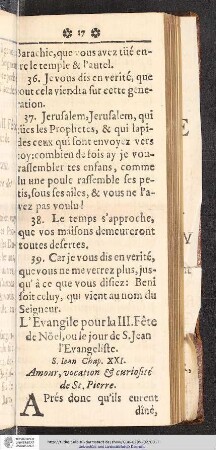 17
Barachie, que vous avez tüé en-
tre le temple & l'autel.
36. Je vous dis en verité, que
tout cela viendra sur cette géne-
ration.
37. Jerusalem, Jerusalem, qui
tües les Prophetes, & qui lapi-
des ceux qui sont envoyez vers
toy: combien de fois ay je vou-
rassembler tes enfans, comme
lu une poule rassemble ses pe-
tis, sous ses ailes, & vous ne l'a-
vez pas voulu!
38. Le temps s'approche,
que vos maisons demeureront
toutes desertes.
39. Car je vous dis en verité,
que vous ne me verrez plus, jus-
qu' à ce que vous disiez: Beni
soit celuy, qui vient au nom du
Seigneur.
L'Evangile pour la III. Fête
de Nöel, ou le jour de S. Jean
l'Evangeliste.
S. Iean Chap. XXI.
Amour, vocation & curiosité
de St. Pierre.
Aprés donc qu'ils eurent
dîné,